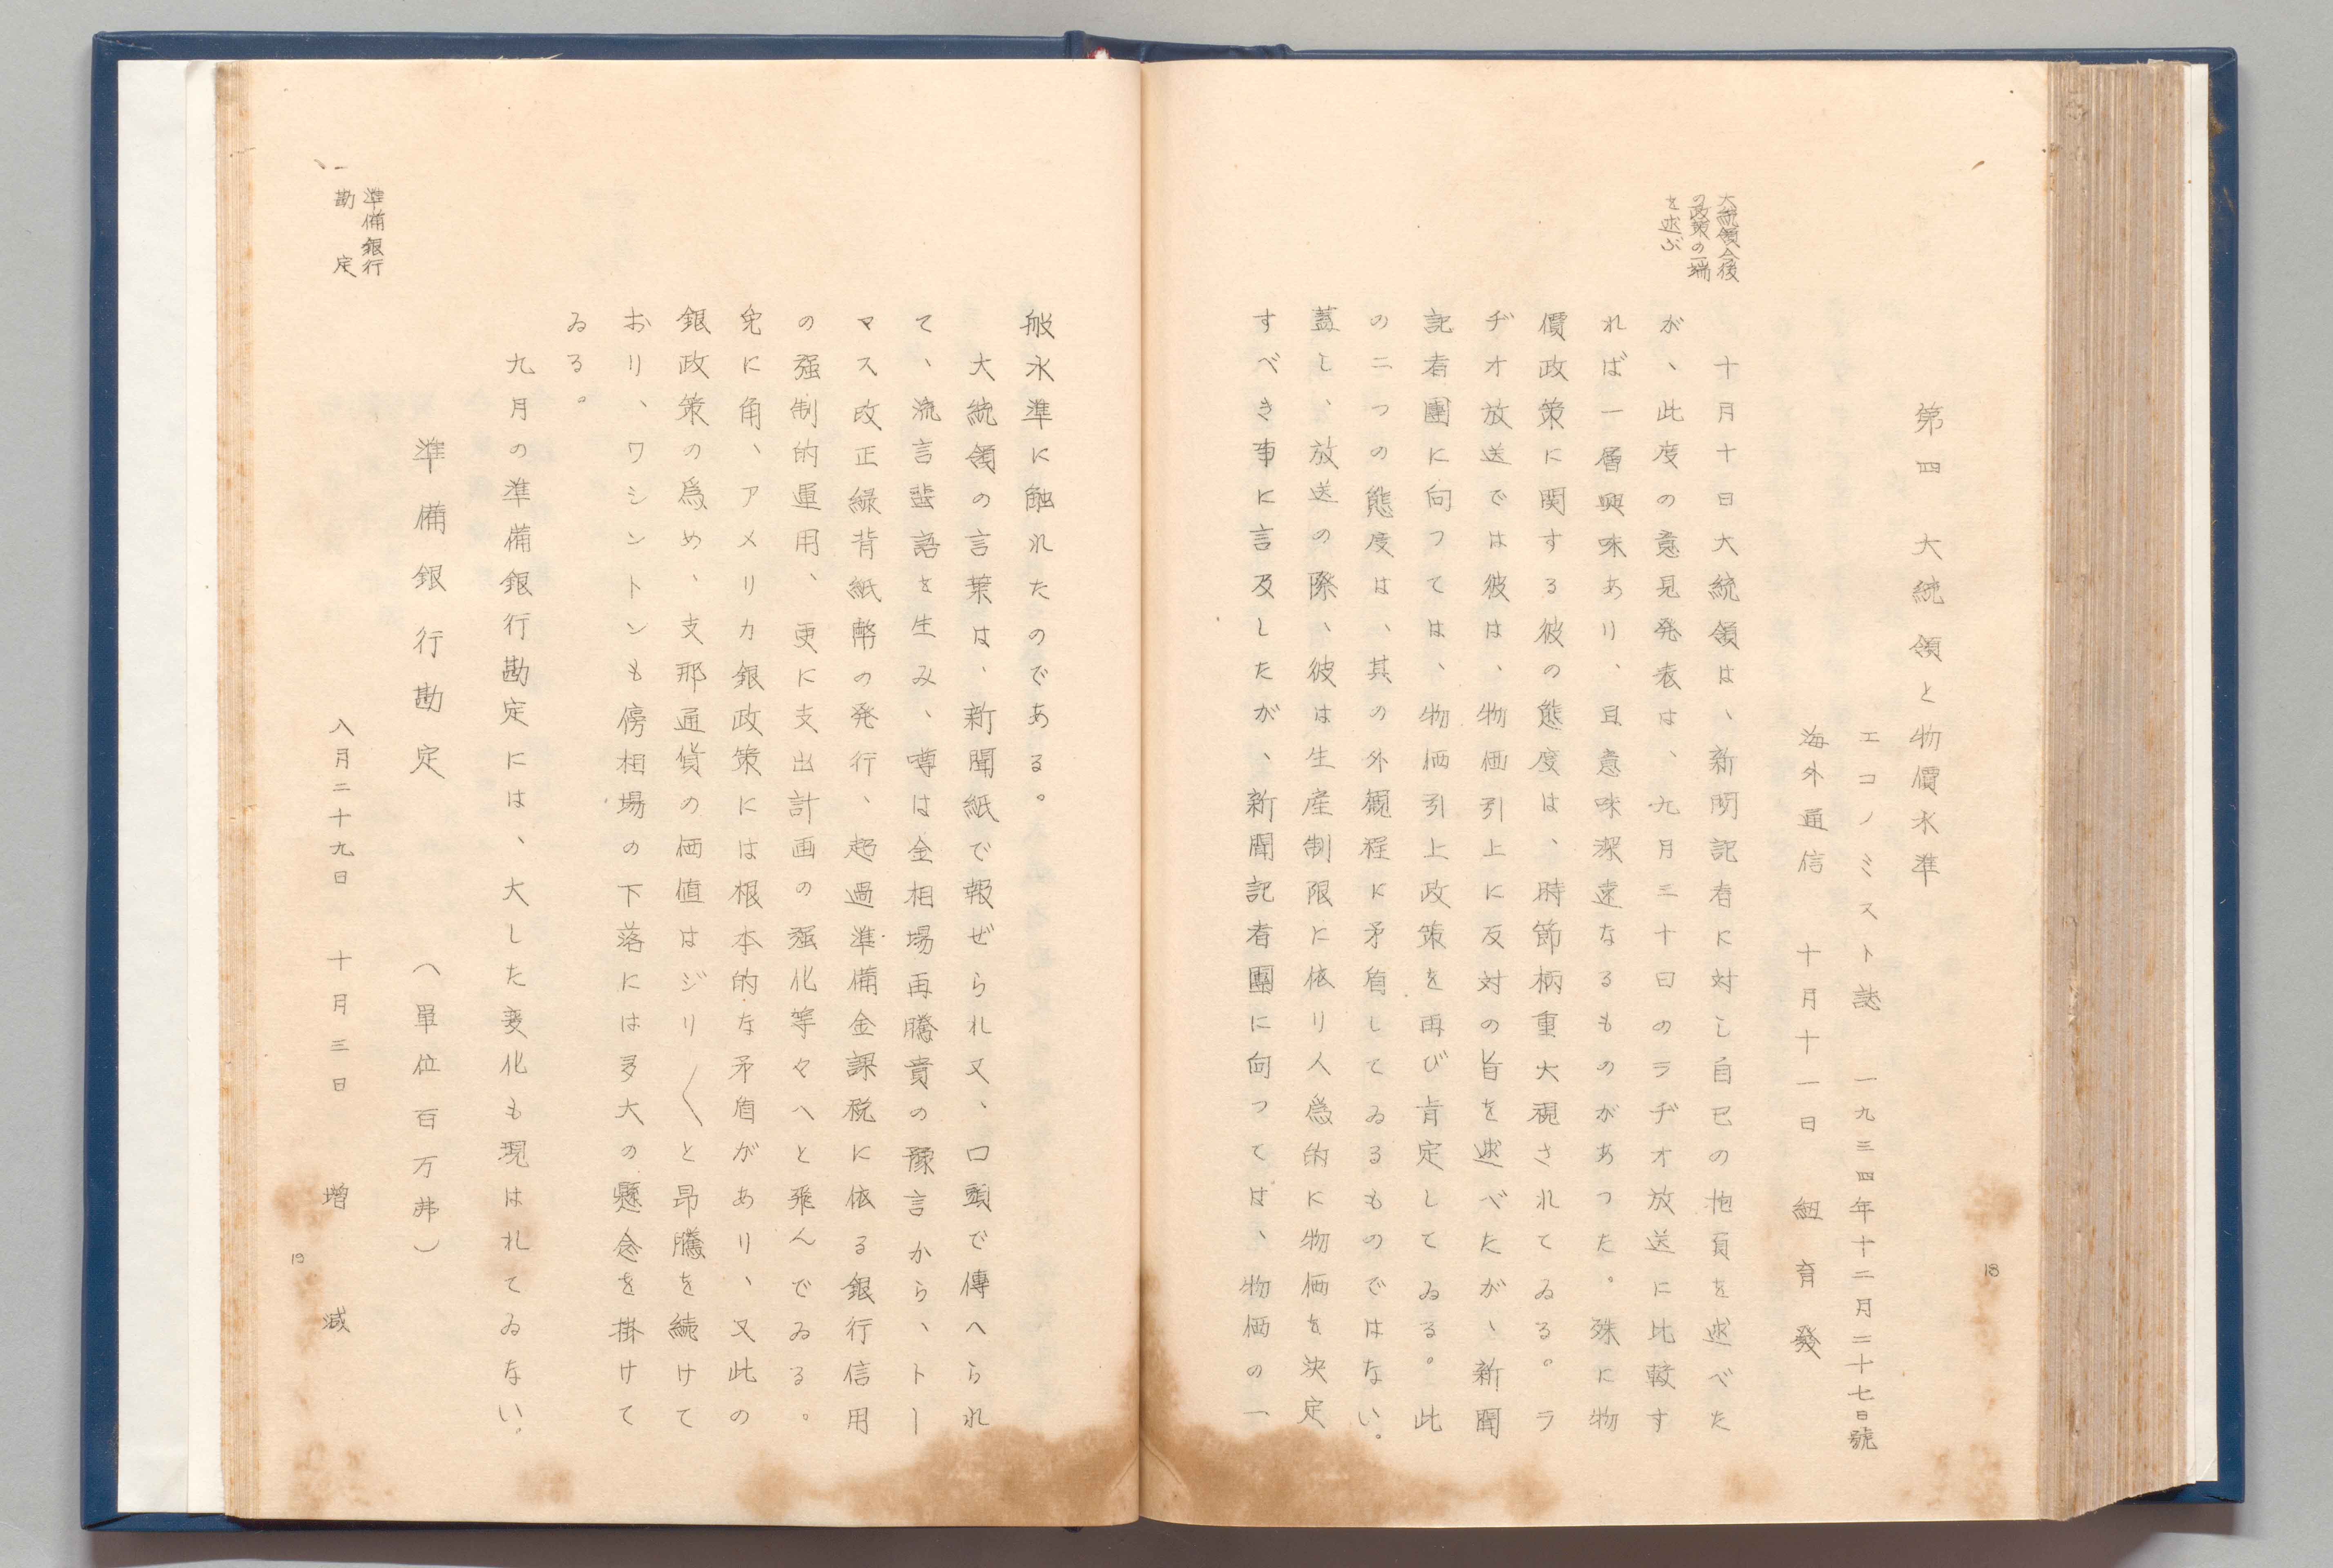 第四 大統領と物價水準
エコノミスト誌 一九三四年十二月二十七日號
海外通信 十月十一日 紐育發
大統領今後
の政策の一端
を述ぶ
十月十日大統領は、新聞記者に対し自己の抱負を述べた
が、此度の意見発表は、九月三十日のラヂオ放送に比較す
れば一層興味あり、且意味深遠なるものがあつた。殊に物
價政策に関する彼の態度は、時節柄重大視されてゐる。ラ
ヂオ放送では彼は、物価引上に反対の旨を述べたが、新聞
記者團に向つては、物価引上政策を再び肯定してゐる。此
の二つの態度は、其の外観程に矛盾してゐるものではない。
蓋し、放送の際、彼は生産制限に依り人為的に物価を決定
すべき事に言及したが、新聞記者團に向つては、物価の一
18
般水準に触れたのである。
大統領の言葉は、新聞紙で報ぜられ又、口頭で傳へられ
て、流言蜚語を生み、噂は金相場再騰貴の豫言から、トー
マス改正緑背紙幣の発行、超過準備金課税に依る銀行信用
の强制的運用、更に支出計画の强化等々へと飛んでゐる。
兎に角、アメリカ銀政策には根本的な矛盾があり、又此の
銀政策の爲め、支那通貨の価値はジリ〱と昂騰を続けて
おり、ワシントンも傍相場の下落には多大の懸念を掛けて
ゐる。
九月の準備銀行勘定には、大した変化も現はれてゐない。
準備銀行勘定 （單位百万弗）
準備銀行
一勘定
八月二十九日 十月三日 増 減
19